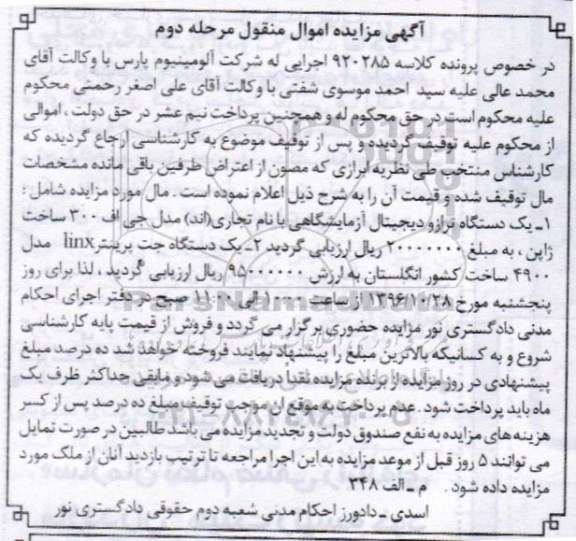 آگهی مزایده اموال منقول مرحله دوم
در خصوص پرونده کلاسه ۹۲۰۲۸۵ اجرایی له شرکت آلومینیوم پارس با وکالت آقای
محمد عالی علیه سید احمد موسوی شفتی با وکالت آقای علی اصغر رحمتی محکوم
علیه محکوم است در حق محکوم له و همچنین پرداخت نیم عشر در حق دولت ، اموالی
از محکوم علیه توقیف گردیده و پس از توقیف موضوع به کارشناسی ارجاع گردیده که
کارشناس منتخب طی نظریه ابرازی که مصون از اعتراض طرفین باقی مانده مشخصات
مال توقیف شده و قیمت آن را به شرح ذیل اعلام نموده است . مال مورد مزایده شامل :
۱ـ یک دستگاه ترازو دیجیتال آزمایشگاهی با نام تجاری(اند) مدل جی اف ۳۰۰ ساخت
ژاپن ، به مبلغ ۲۰۰۰۰۰۰۰ ریال ارزیابی گردید ۲ـ یک دستگاه جت پرینتر linx مدل
۴۹۰۰ ساخت کشور انگلستان به ارزش ۹۵۰۰۰۰۰۰ ریال ارزیابی گردید ، لذا برای روز
پنجشنبه مورخ ۱۳۹۶/۱۰/۲۸ از ساعت ۱۰:۰۰ الی ۱۱:۰۰ صبح در دفتر اجرای احکام
مدنی دادگستری نور مزایده حضوری برگزار می گردد و فروش از قیمت پایه کارشناسی
شروع و به کسانیکه بالاترین مبلغ را پیشنهاد نمایند فروخته خواهد شد ده درصد مبلغ
پیشنهادی در روز مزایده از برنده مزایده نقدا دریافت می شود و مابقی حداکثر ظرف یک
ماه باید پرداخت شود . عدم پرداخت به موقع آن موجب توقیف مبلغ ده درصد پس از کسر
هزینه های مزایده به نفع صندوق دولت و تجدید مزایده می باشد طالبین در صورت تمایل
می توانند ۵ روز قبل از موعد مزایده به این اجرا مراجعه تا ترتیب بازدید آنان از ملک مورد
مزایده داده شود . م ـ الف ۳۴۸
اسدی ـ دادورز احکام مدنی شعبه دوم حقوقی دادگستری نور
ParsNamadData